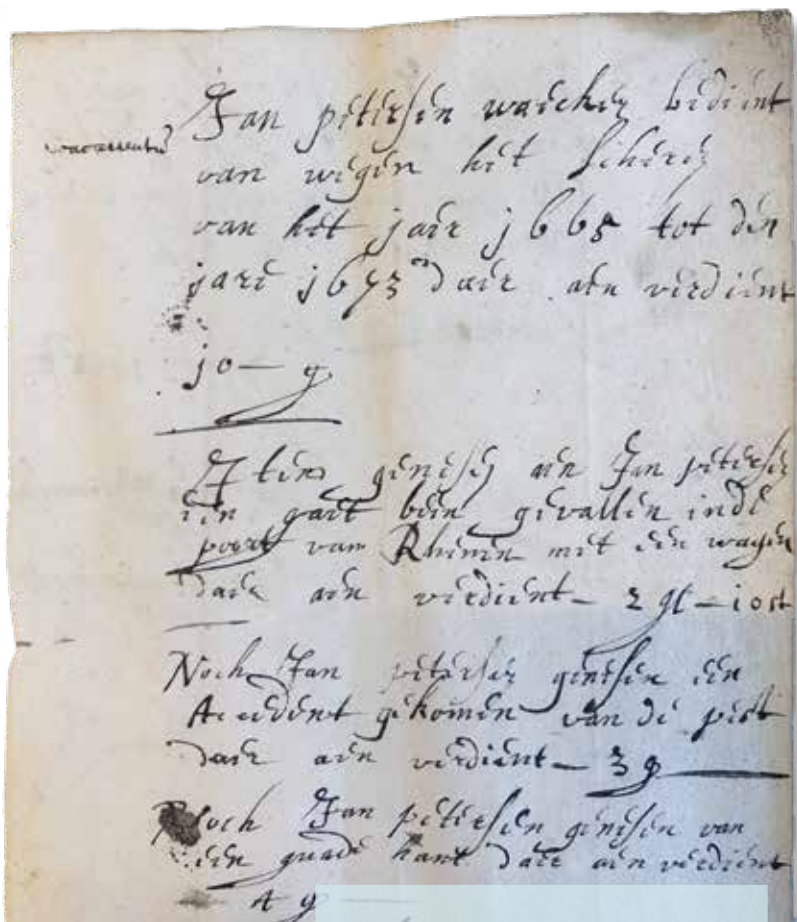 Jan petersen waecker bedient
van wegen het scheren
van het jaer j665 tot den
jare j673 daer aen verdient
jo — g
Item genesen aen Jan petersen
een quaet been gevallen inde
poort van Rhenen met een wagen
daer aen verdient — 2 gl — iost
Noch Jan petersen genesen een
Accedent gekomen van de pest
daer aen verdient — 3 g
Noch Jan petersen genesen van
een quade hant daer aen verdient
4 g